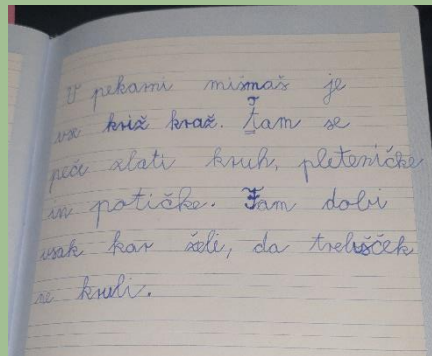 V pekarni mišmaš je
vse križ kraž. Tam se
peče zlati kruh, pleteničke
in potičke. Tam dobi
vsak kar želi, da trebušček
ne kruli.